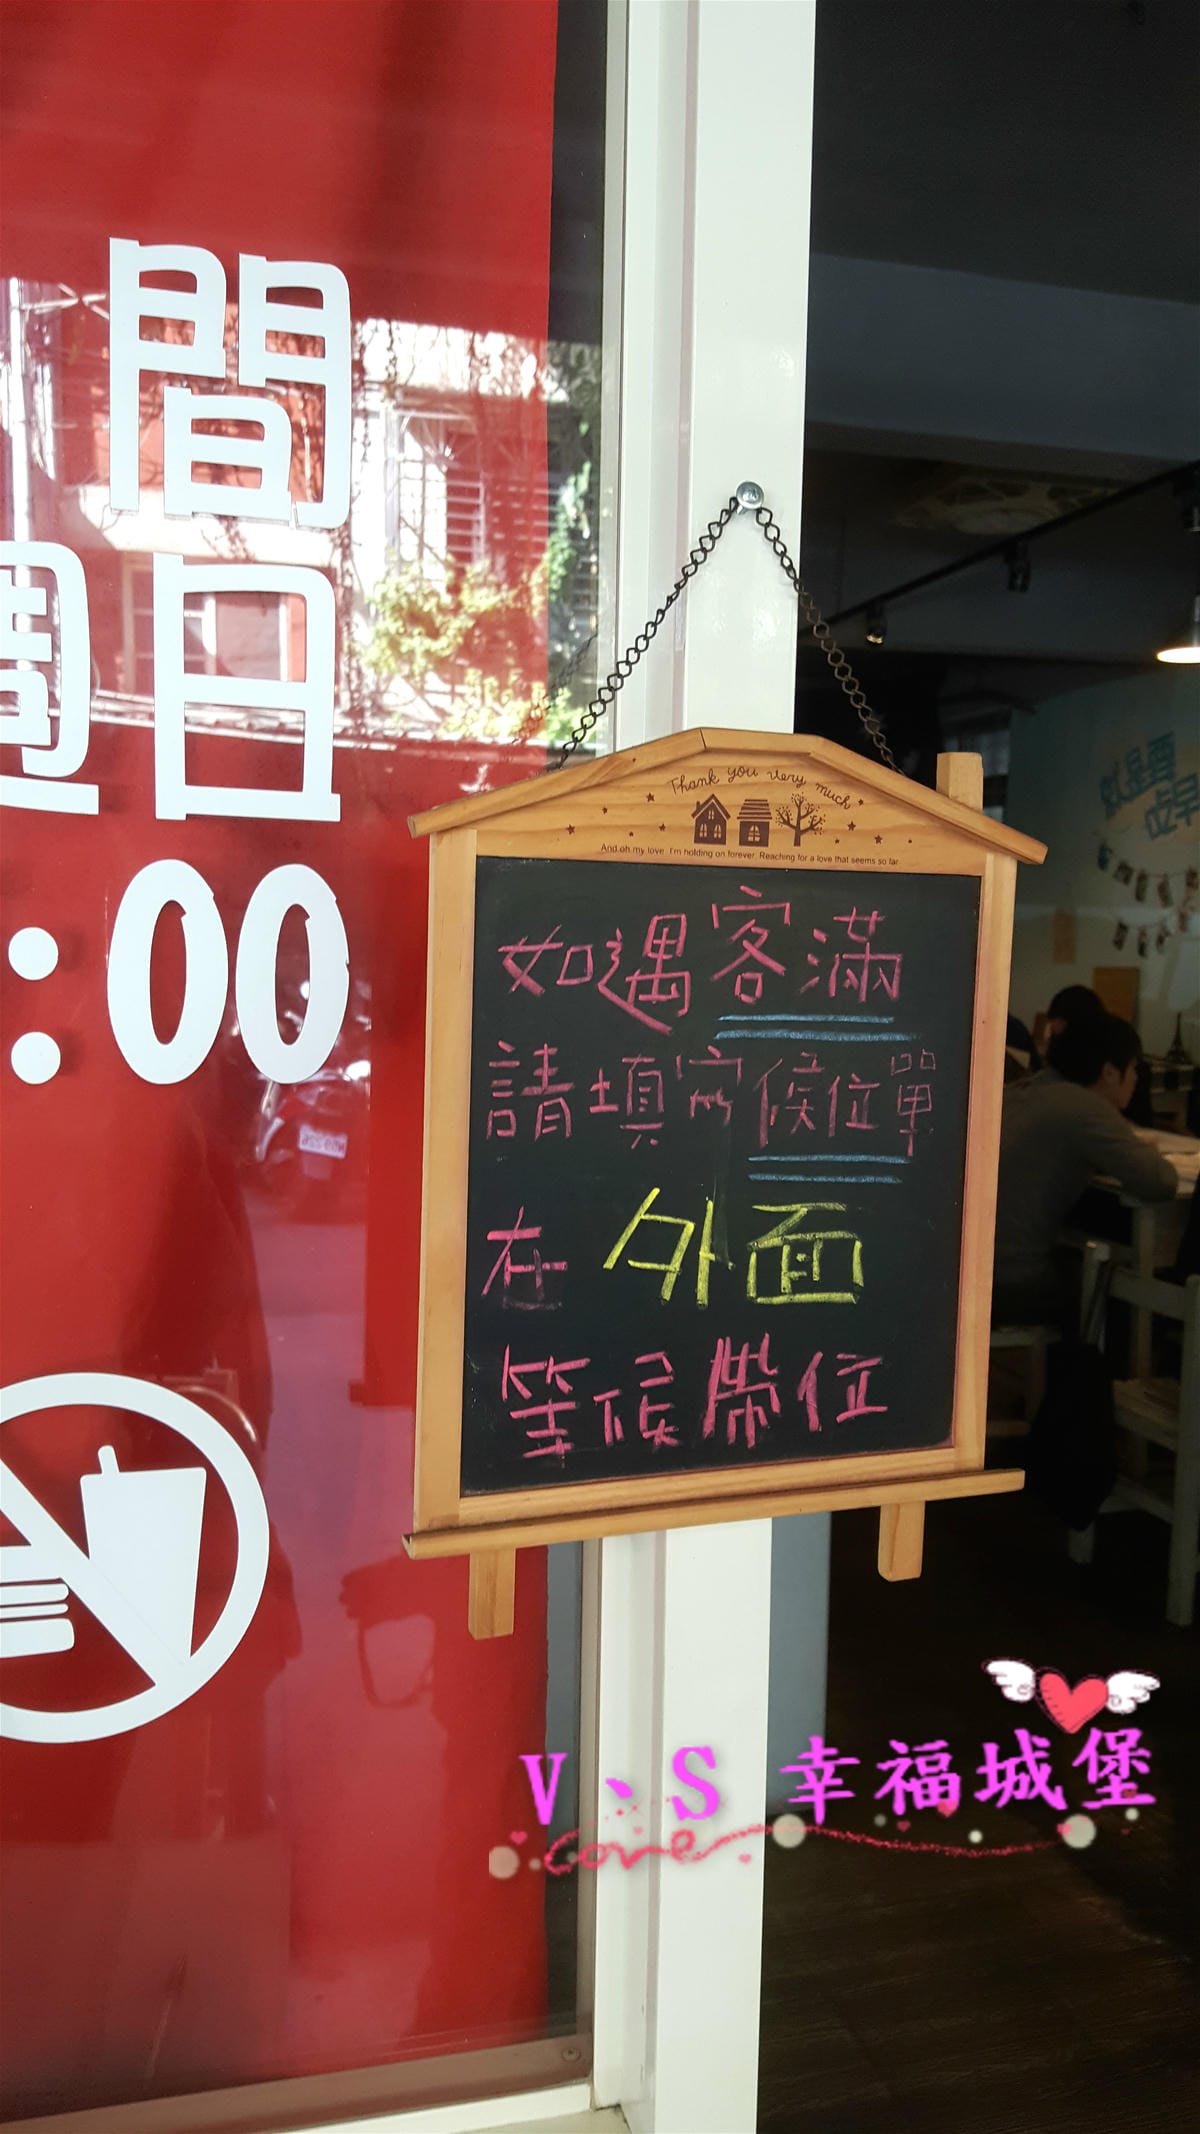 間
週日
:00
Thank you very much
And oh my love I'm holding on forever Reaching for a love that seems so far
如遇客滿
請填寫候位單
在外面
等候帶位
就是要
V、S 幸福城堡
Love